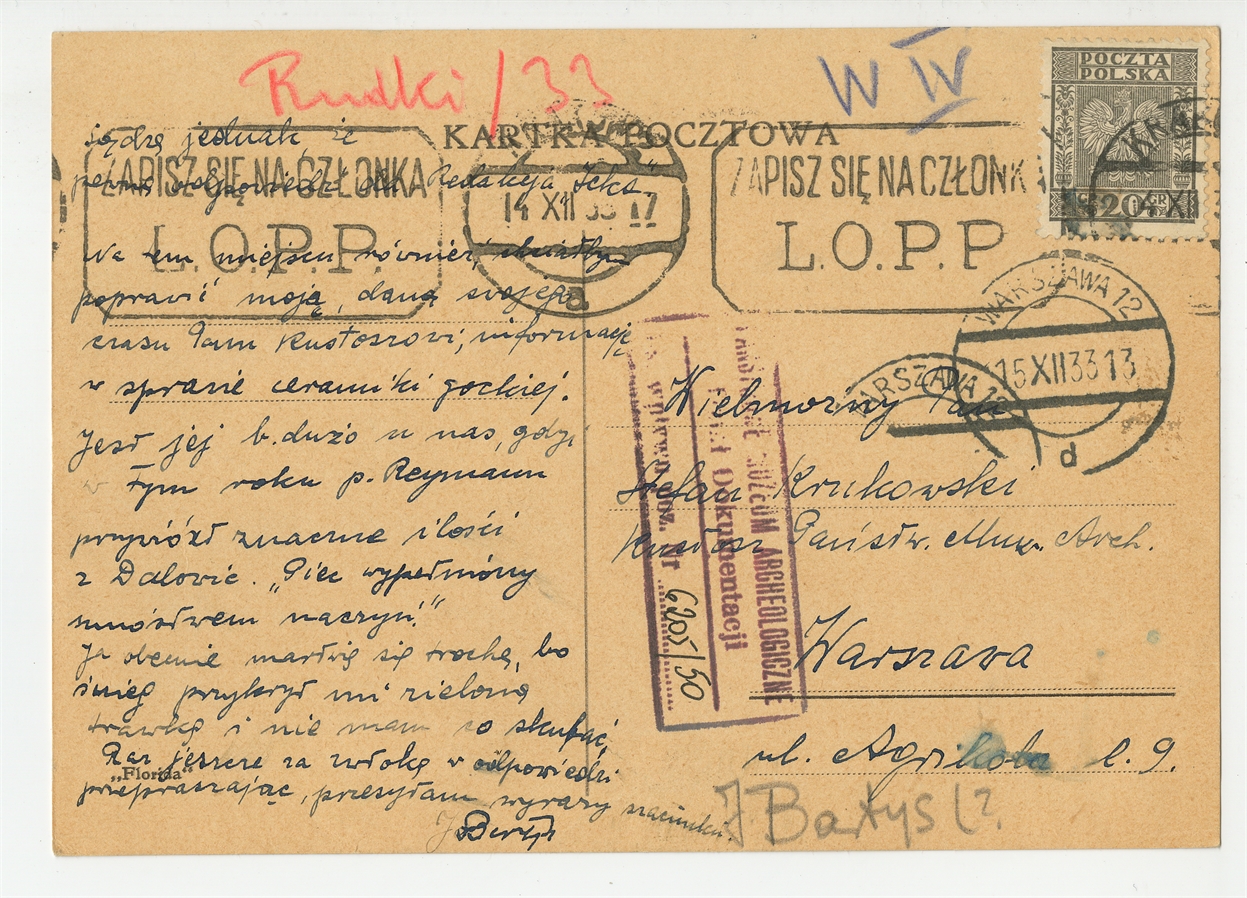 Rudki/33
W IV
POCZTA
POLSKA
20 GR
KARTKA POCZTOWA
ZAPISZ SIĘ NA CZŁONKA
L.O.P.P.
14 XII 33 17
a
ZAPISZ SIĘ NA CZŁONK
L.O.P.P
4 XII
WARSZAWA 12
15 XII 33 13
d
WARSZAWA 12
sądzę jednak, że
odpowiedzi Redakcja
Na tem miejscu również chciałby
poprawić moją, daną swojego
czasu Panu Kustoszowi, informację
w sprawie ceramiki gockiej.
Jest jej b. dużo u nas, gdyż
w tym roku p. Reymann
przywiózł znaczne ilości
z Dalowic. "Piec wypełniony
mnóstwem naczyń."
Ja obecnie martwię się trochę, bo
śnieg przykrył mi zieloną
trawkę i nie mam co skubać.
Raz jeszcze za zwłokę w odpowiedzi
przepraszając, przesyłam wyrazy szacunku.
J Bartys
"Florida"
Wielmożny Pan
Stefan Krukowski
Kustosz Państw. Muz. Arch.
Warszawa
ul. Agrikola l. 9.
MUZEUM ARCHEOLOGICZNE
Dział Dokumentacji
poz. Nr 6205/50
J Bartys (?